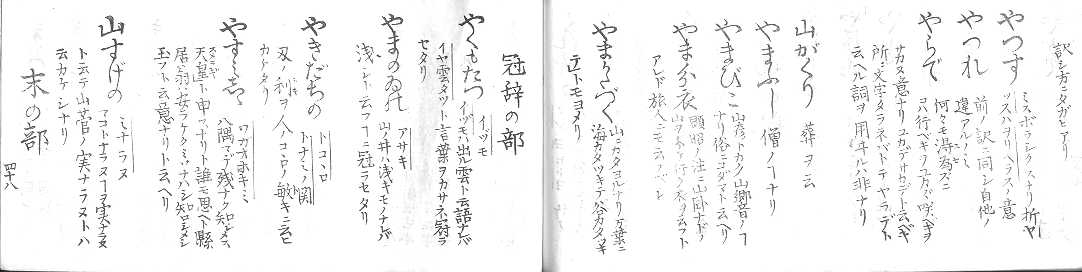 訳シ方ニタガヒアリ
やつす ミスボラシクスナリ折ヤ
ツスハヲリヘラスト意
やつれ 前ノ訳ニ同シ自他ノ
違アルノミ
やらで 何々モ得為ズニ
サカヌ意ナリユカデサカデト云ベキ
所ニ文字タラネバトテヤラデト
云ヘル詞ヲ用ヰルハ非ナリ
山がくり 葬ヲ云
やまぶし 僧ノヿナリ
やまびこ 山彦トカク山響音ノヿ
ナリ俗ニコダマト云ヘリ
やまわけ衣
アレド旅人ニモ云フベシ
やまかたづく 山ニカタヨルナリ万葉ニ
海カタツキテ谷カタツキ
テ㐧トモヨメリ
冠辞の部
やくもたつ イヅモ
イヤ雲タツト言葉ヲカサネ冠ラ
セタリ
やまのゐの アサキ
山ノ井ハ浅キモノナレバ
浅シト云フヿニ冠ラセタリ
やきだちの トコヽロ
トナミノ関
刃ノ利ヲ人ノコヽロノ敏キニ云ヒ
カケタリ
やすみしゝ ワカオホキミ
八隅マデ残リナク知シメス
天皇ト申スナリト誰モ思ヘト縣
居翁ハ安ラケクミソナハシ知ロシメシ
玉フト云意ナリト云ヘリ
山すげの ミナラヌ
アコトナラヌヿヲ実ナラヌ
ト云テ山菅ノ実ナラヌトハ
云カケシナリ
末の部
四十八